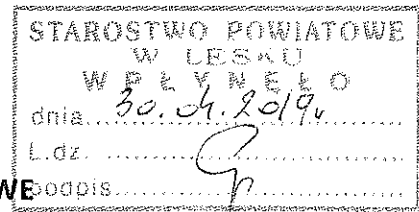 STAROSTWO POWIATOWE
W LESKU
WPŁYNĘŁO
dnia 30.04.2019r
L.dz.
WE
podpis